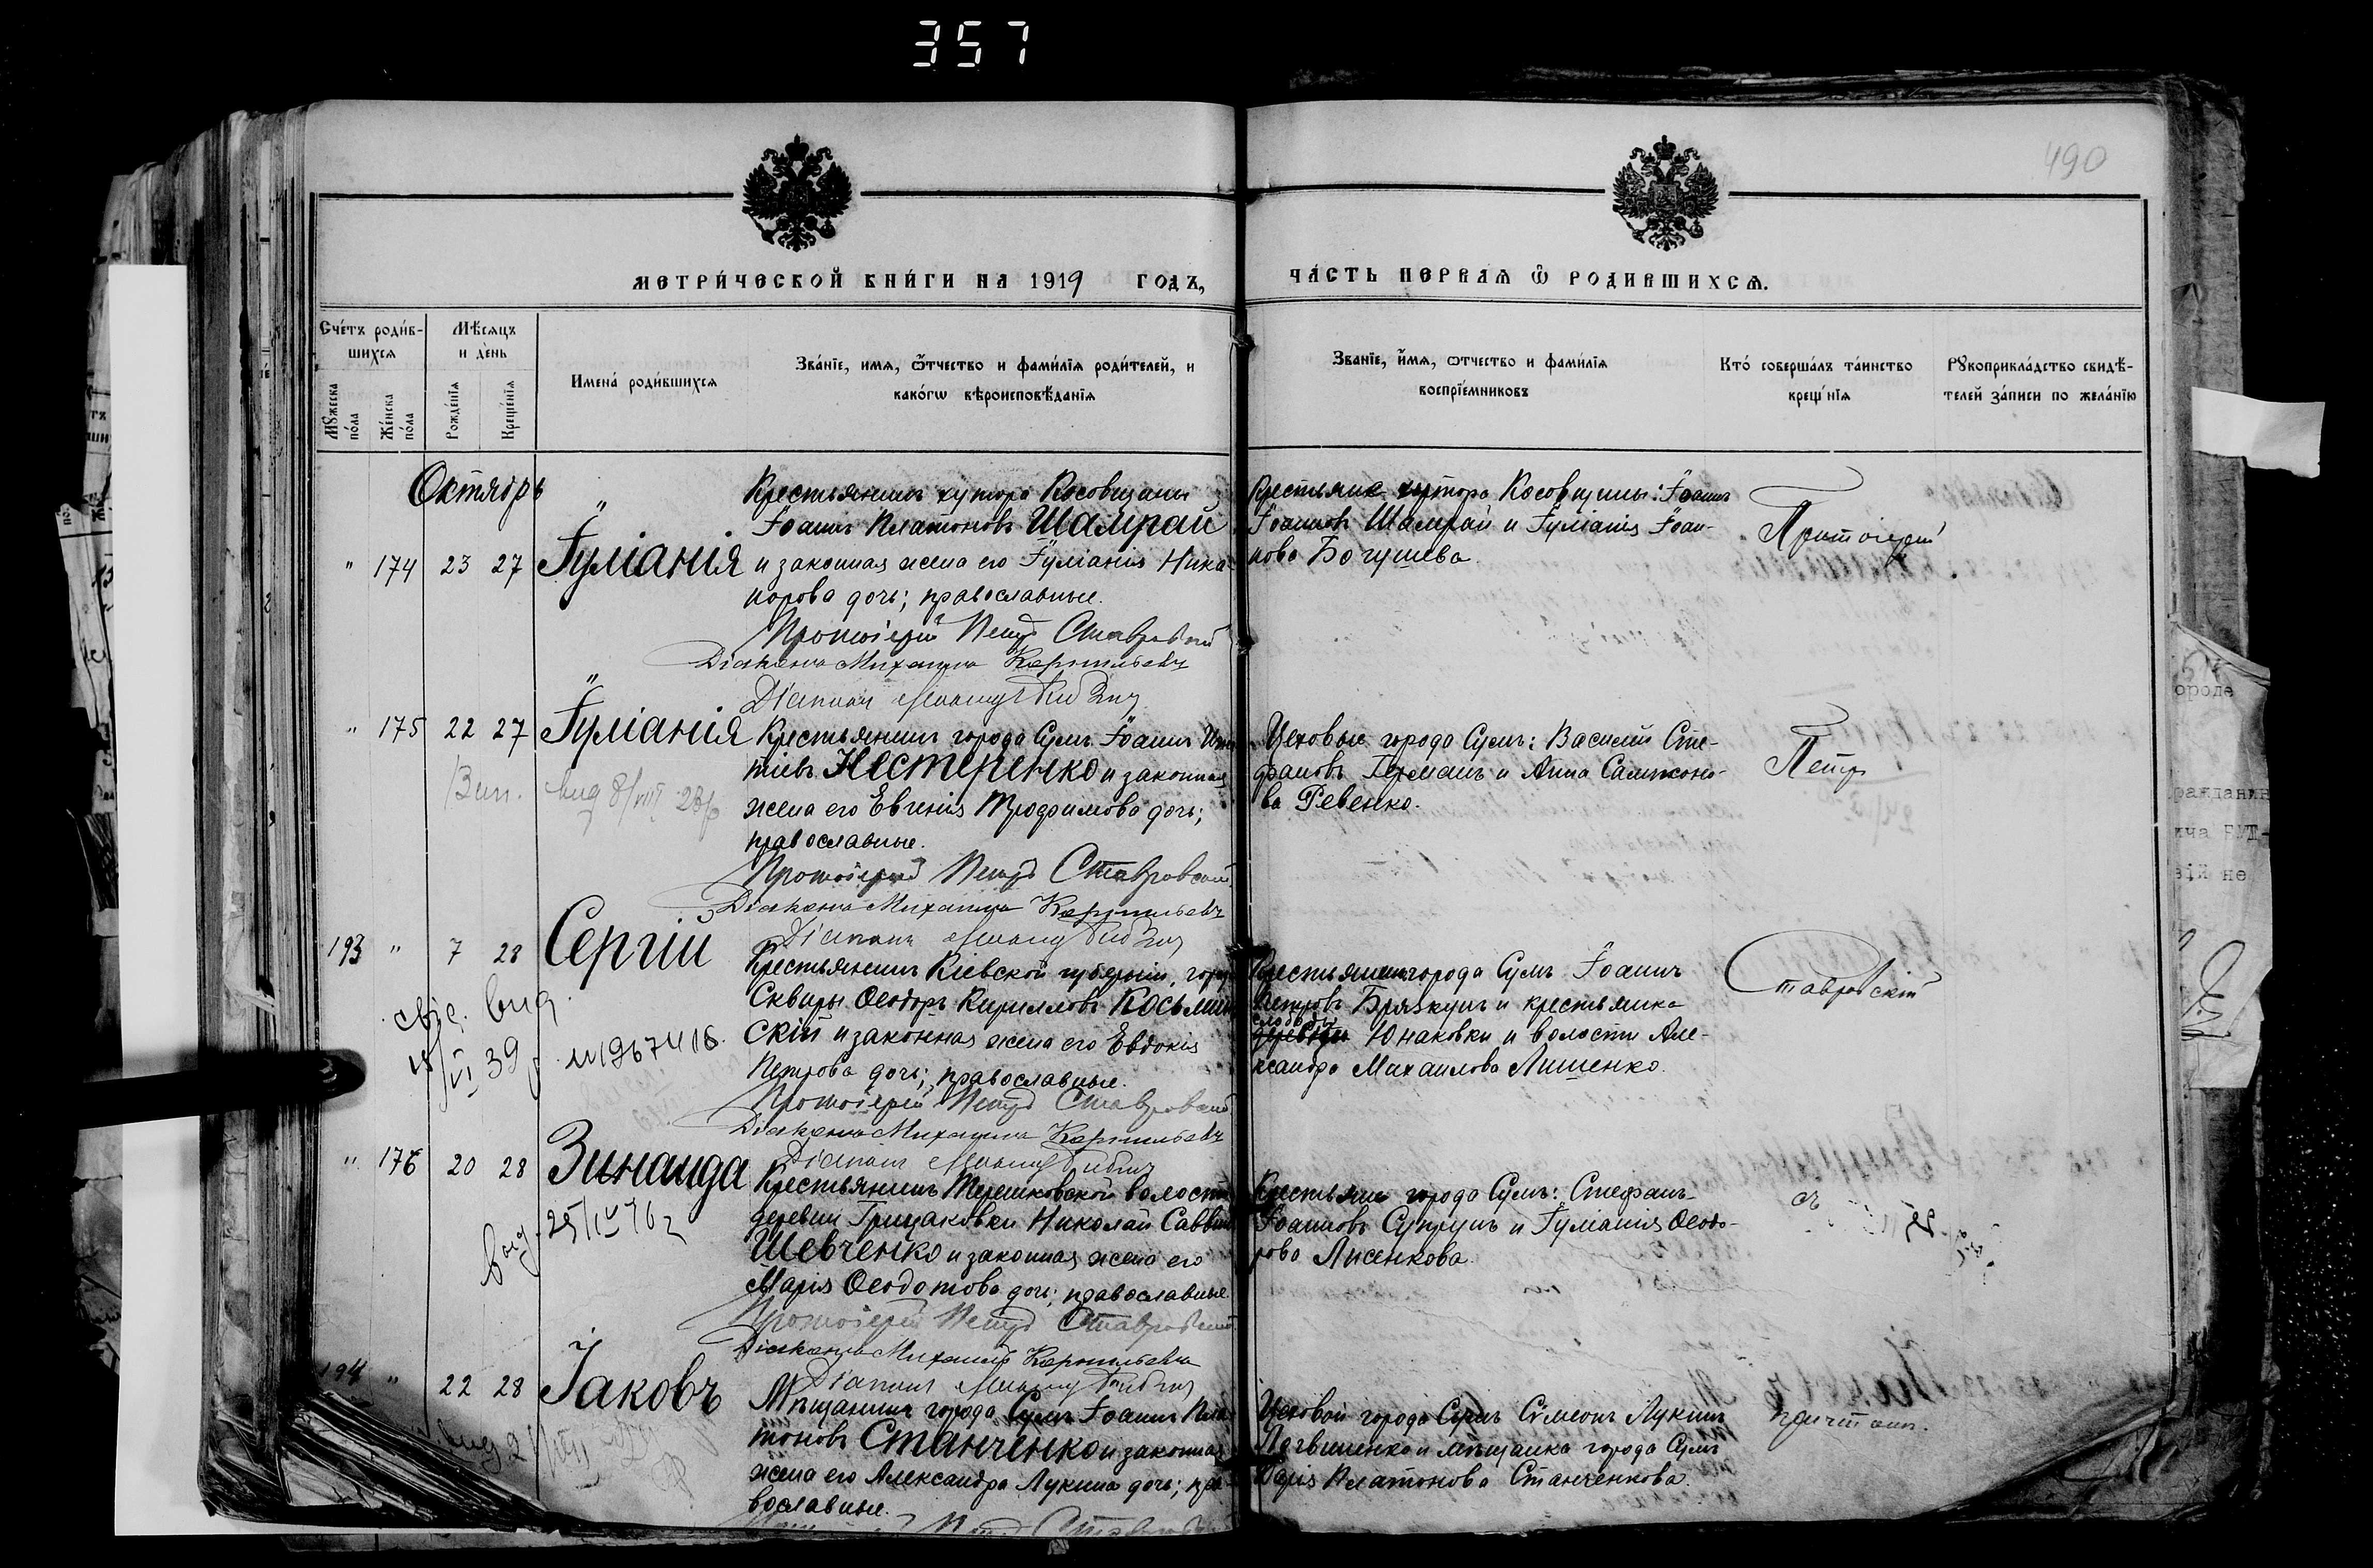 357
490
МЕТРИ́ЧЕСКОЙ КНИ́ГИ НА 1919 ГОДЪ,
ЧА́СТЬ ПЕРВАѦ Ѿ РОДИВШИХСѦ.
Сче́тъ роди́в-
шихсѧ
Мѣ́сѧцъ
и де́нь
Мꙋ́жеска
по́ла
Же́нска
по́ла
Рожде́нїѧ
Креще́нїѧ
Имена́ роди́вшихсѧ
Зва́нїе, имѧ, ѻ҆́тчество и фами́лїѧ роди́телей, и
како́гѡ вѣроисповѣ́данїѧ
Зва́нїе, и҆́мѧ, ѻтчество и фами́лїѧ
воспрїе́мниковъ
Кто́ соверша́лъ та́инство
креще́нїѧ
Рꙋкоприкла́дство свидѣ́-
телей за́писи по жела́нїю
Октябрь
" 174 23 27 Іуліанія
Крестьянинъ хутора Косовщины
Іоаннъ Платоновъ Шамрай
и законная жена его Іуліанія Ника-
норова дочь; православные.
Протоіерей Петръ Ставровский
Діаконъ Михаилъ
Діаконъ
Крестьяне хутора Косовщины: Іоаннъ
Іоанновъ Шамрай и Іуліанія Іоан-
нова Богушева.
Протоіерей
" 175 22 27 Іуліанія
Крестьянинъ города Сумъ Іоаннъ
тіевъ Нестеренко и законная
жена его Евгенія Трофимова дочь;
православные.
Протоіерей Петръ Ставровский
Діаконъ Михаилъ
Діаконъ
Цеховые города Сумъ: Василій Сте-
фановъ Германъ и Анна Самсоно-
ва Ревенко.
Петръ
193 " 7 28 Сергій
Крестьянинъ Кіевской губерніи, гор.
Сквиры Ѳеодоръ Кирилловъ Косьмин
скій и законная жена его Евдокія
Петрова дочь; православные.
Протоіерей Петръ Ставровский
Діаконъ Михаилъ
Діаконъ
Крестьянинъ города Сумъ Іоаннъ
Петровъ Брязкунъ и крестьянка
слободы
Юнаковки и волости Але-
ксандра Михаилова Лишенко.
Ставровскій
" 176 20 28 Зинаида
25/IV 76 г
Крестьянинъ Терешковской волости
деревни Грицаковки Николай Саввинъ
Шевченко и законная жена его
Марія Ѳеодотова дочь; православные.
Протоіерей Петръ Ставровский
Діаконъ Михаилъ
Діаконъ
Крестьяне города Сумъ: Стефанъ
Іоанновъ Супрунъ и Іуліанія Ѳеодо-
рова Лисенкова.
съ
194 " 22 28 Іаковъ
Мѣщанинъ города Сумъ Іоаннъ Пла-
тоновъ Станченко и законная
жена его Александра Лукина дочь; пра-
вославные.
Цеховой города Сумъ Сѵмеонъ Лукинъ
Логвиненко и мѣщанка города Сумъ
Дарія Платонова Станченкова.
причтомъ.
ороде
ражданин